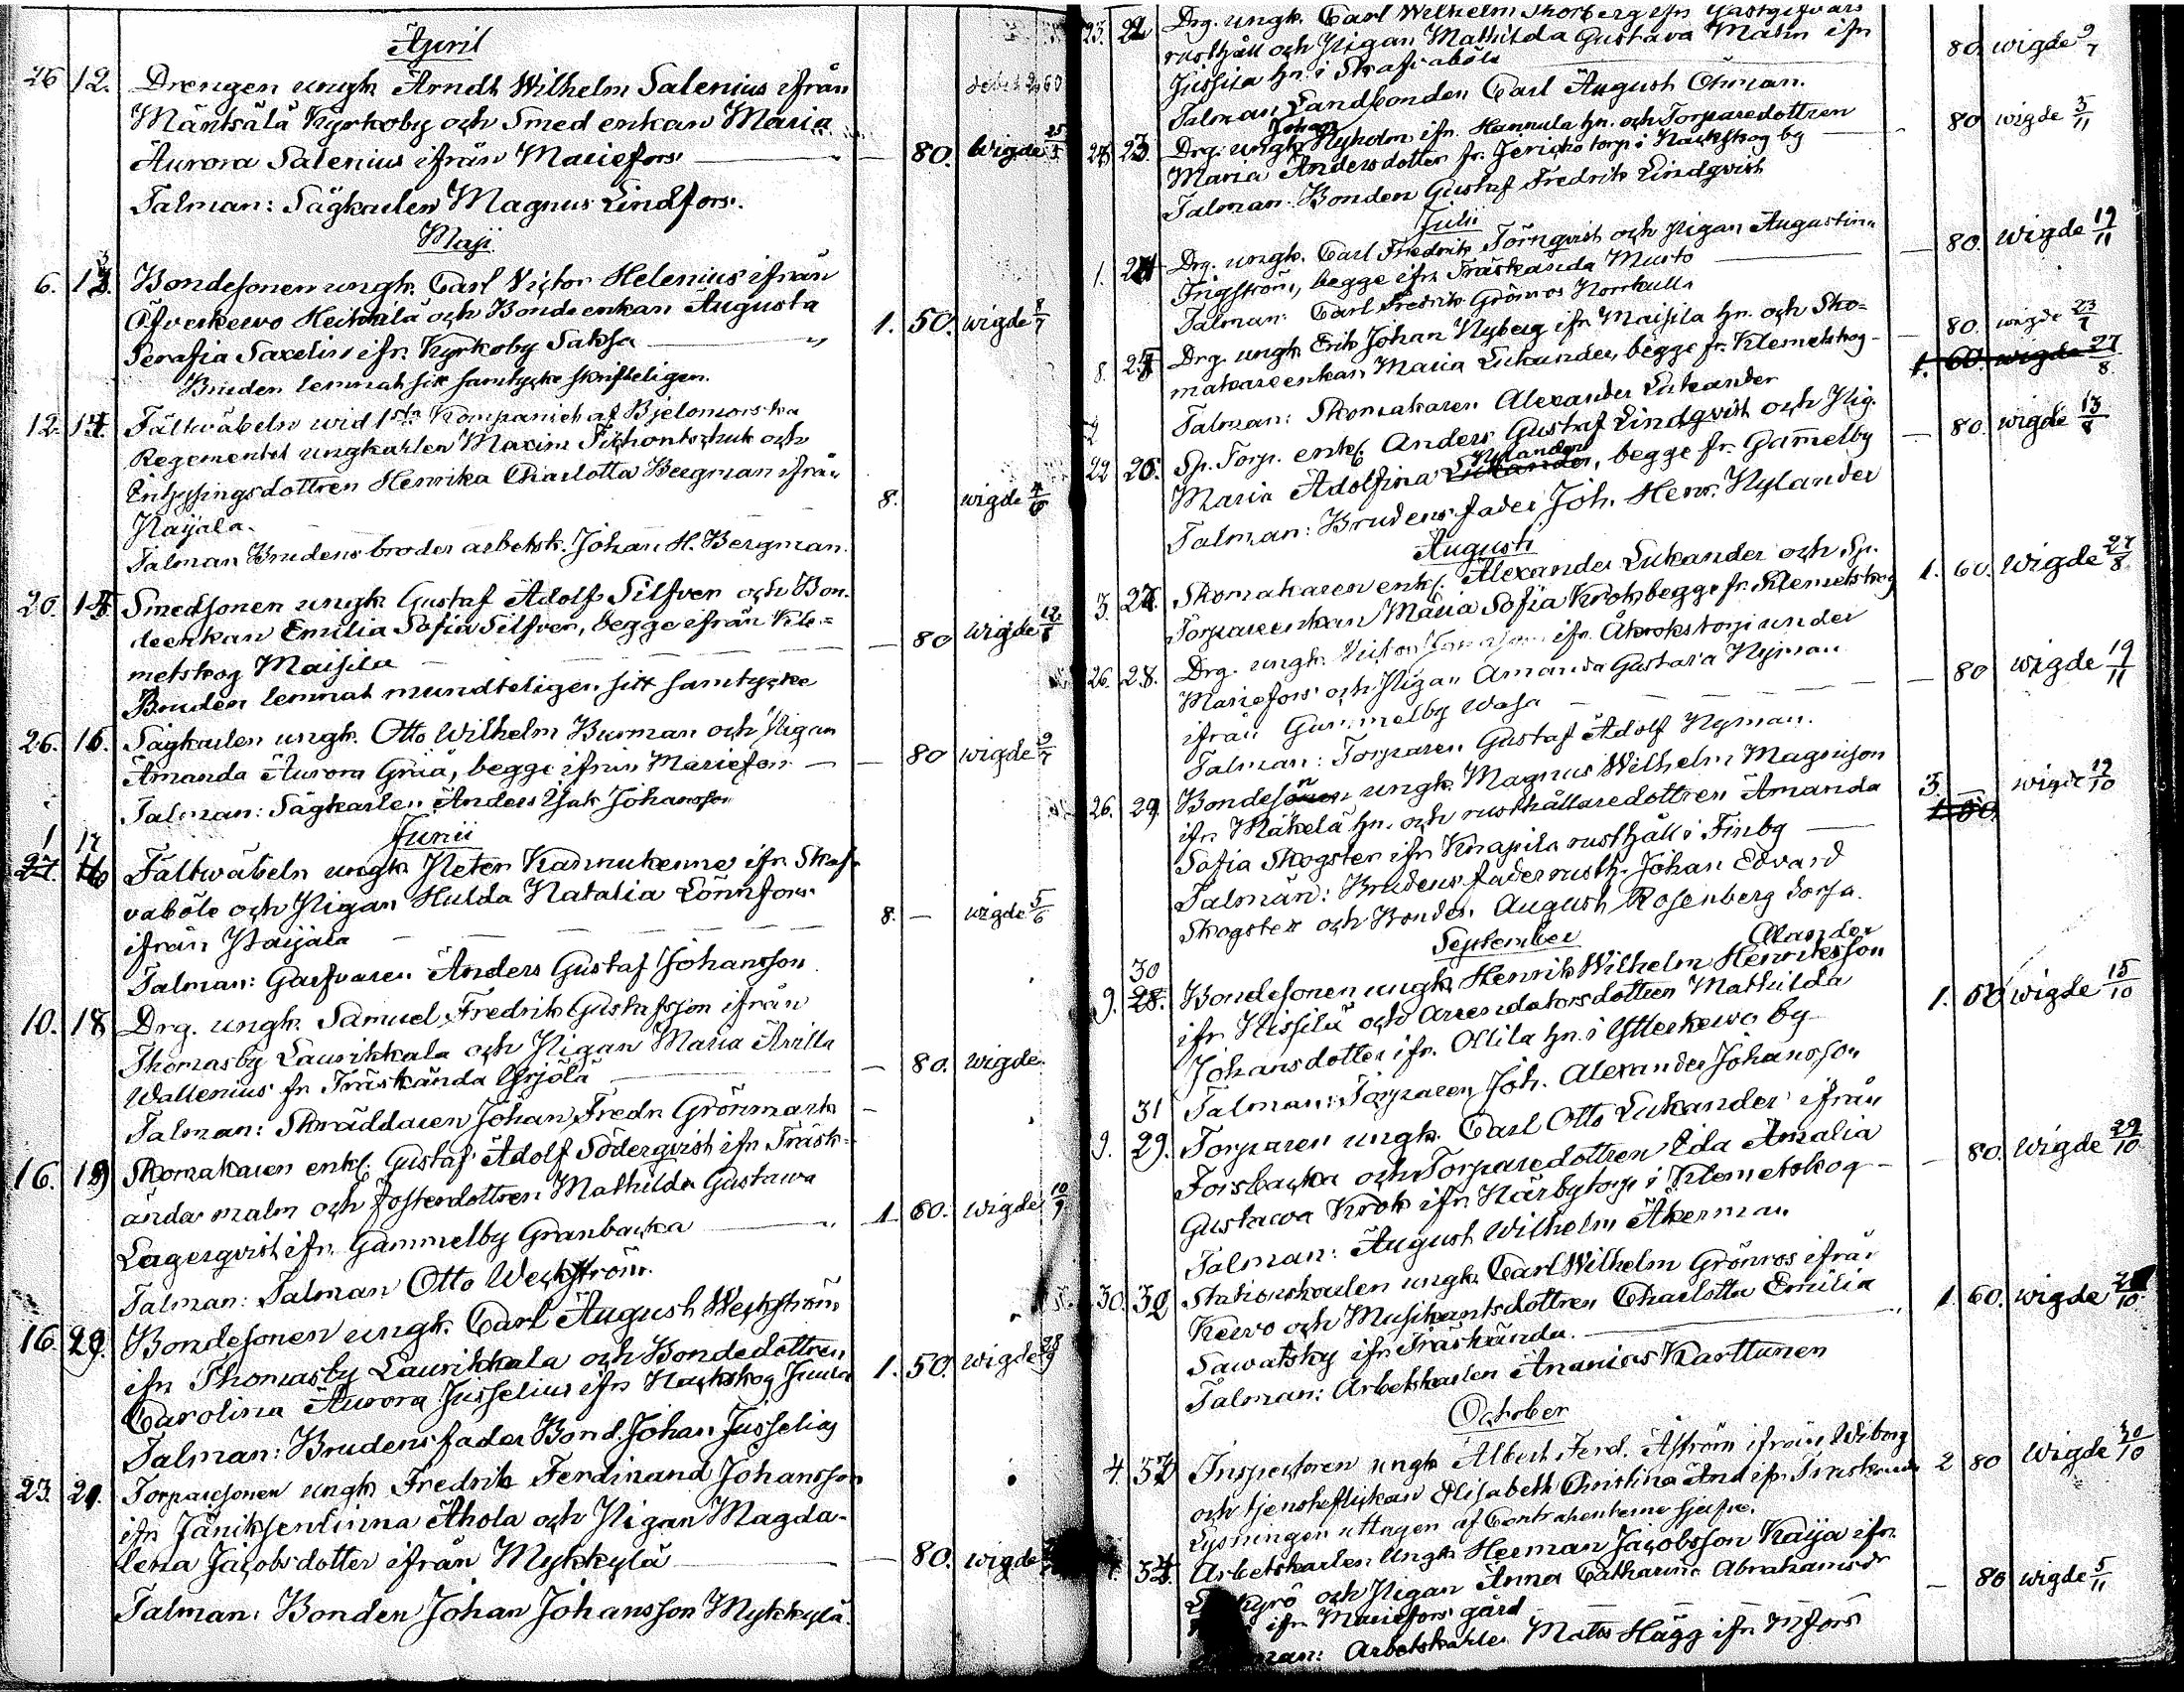 April
26 12. Drengen ungk. Arndt Wilhelm Salenius ifrån
Mäntsälä Kyrkoby och Smed enkan Maria
Aurora Salenius ifrån Mariefors — 80. Wigde
Talman: Sågkarlen Magnus Lindfors.
Maji
6. 13. Bondesonen ungk. Carl Victor Helenius ifrån
Öfverkervo Heikkilä och Bonde enkan Augusta
Serafia Saxelin ifr. Kyrkoby Saksa — 1. 50. wigde 8/7
Bruden lemnat sitt samtycke skrifteligen.
12. 14. Fältwäbeln wid 1sta Kompaniet af Bjelomorska
Regementet ungkarlen Maxim Tichontschuk och
Enhysingsdottren Henrika Charlotta Bergman ifrån
Paijala. 8. wigde 4/6
Talman Brudens broder arbetsk. Johan H. Bergman.
20. 15 Smedsonen ungk. Gustaf Adolf Silfver och Bon-
deenkan Emilia Sofia Silfver, begge ifrån Kle-
metskog Maisila — 80 wigde
Bruden lemnat mundteligen sitt samtycke
26. 16. Sågkarlen ungk. Otto Wilhelm Burman och Pigan
Amanda Aurora Grää, begge ifrån Mariefors — 80 wigde 9/7
Talman: Sågkarlen Anders Isak Johansson
Junii
1 17
27. 16 Fältwäbeln ungk. Peter Kannukenne ifr. Skaf-
vaböle och Pigan Hulda Natalia Lönnfors
ifrån Paijala — 8. — wigde 5/6
Talman: Garfvaren Anders Gustaf Johansson
10. 18 Drg. ungk. Samuel Fredrik Gustafsson ifrån
Thomasby Laurikkala och Pigan Maria Arilla
Wallenius fr. Träskända Yrjölä — 80. wigde
Talman: Skräddaren Johan Fredr. Grönmark
16. 19 Skomakaren enkl. Gustaf Adolf Söderqvist ifr. Träsk-
ända malm och fosterdottren Mathilda Gustawa
Lagerqvist ifr. Gammelby Granbacka — 1. 60. wigde 10/9
Talman: Talman Otto Weckström.
16. 20. Bondesonen ungk. Carl August Weckström
ifr. Thomasby Laurikkala och Bondedottren
Carolina Aurora Jusselius ifr. Nackskog Jussila 1. 50. wigde 28/9
Talman: Brudens fader Bond. Johan Jusselius
23. 21. Torparesonen ungk. Fredrik Ferdinand Johansson
ifr. Jäniksenlinna Ahola och Pigan Magda-
lena Jacobsdotter ifrån Mykkylä — 80. wigde
Talman: Bonden Johan Johansson Mykkylä.
23. 22 Drg. ungk. Carl Wilhelm Thorberg ifr. Gästgifvars
rusthåll och Pigan Mathilda Gustava Malm ifr.
Jussila hn. i Skafvaböle — 80. wigde 9/7
Talman Landbonden Carl August Öhman.
Johan
23 Drg. ungk. Nyholm ifr. Hannula hn. och Torparedottren
Maria Andersdotter fr. Jericho torp i Nackskog by — 80 wigde 5/11
Talman: Bonden Gustaf Fredrik Lindqvist
Julii
1. 24 Drg. ungk. Carl Fredrik Törnqvist och Pigan Augustina
Frigström, begge ifr. Träskända Musto — 80. wigde 19/11
Talman: Carl Fredrik Grönros Norrkulla
8. 25 Drg. ungk. Erik Johan Nyberg ifr. Maisila hn. och Sko-
makareenkan Maria Lukander, begge fr. Klemetskog — 80. wigde 23/7
1. 60. wigde 27/8
Talman: Skomakaren Alexander Lukander
22 26. Sp. Torp. enkl. Anders Gustaf Lindqvist och Pig.
Nylander
Maria Adolfina Lukander, begge fr. Gammelby — 80. wigde 13/8
Talman: Brudens fader Joh. Henr. Nylander
Augusti
3. 27. Skomakaren enkl. Alexander Lukander och Sp.
Torpareenkan Maria Sofia Krok begge fr. Klemetskog 1. 60. wigde 27/8
26. 28. Drg. ungk. ifr. Åkrokstorp under
Mariefors och Pigan Amanda Gustava Nyman
ifrån Gammelby Wasa — 80 wigde 19/11
Talman: Torparen Gustaf Adolf Nyman.
26. 29 Bondesonen ungk. Magnus Wilhelm Magnison
ifr. Mäkelä hn. och rusthållaredottren Amanda 3. — wigde 19/10
Sofia Skogster ifr. Knapila rusthåll i Finby —
Talmän: Brudens fader rusth. Johan Edvard
Skogster och Bonden August Rosenberg Dorfa.
September
30 Alander
9. 28. Bondesonen ungk. Henrik Wilhelm Henriksson
ifr. Nissilä och Arrendatorsdottren Mathilda
Johansdotter ifr. Ollila hn. i Ytterkervo by — 1. 50 wigde 15/10
Talman: Torparen Joh. Alexander Johansson
31
9. 29. Torparen ungk. Carl Otto Lukander ifrån
Forsbacka och Torparedottren Eda Amalia
Gustawa Krok ifr. Närbytorp i Klemetskog — 80. wigde 29/10
Talman: August Wilhelm Åkerman
30. 32 Stationskarlen ungk. Carl Wilhelm Grönros ifrån
Kervo och Musikantsdottren Charlotta Emilia
Sawatsky ifr. Träskända. — 1. 60. wigde
Talman: Arbetskarlen Ananias Karttunen
October
4. 33 Inspectoren ungk. Albert Ferd. Åström ifrån Wiborg
och tjensteflickan Elisabeth Christina ifr. Träskända 2 80 wigde 30/10
Lysningen uttagen af Contrahenterne sjelfve.
34 Arbetskarlen Ungk. Herman Jacobsson Kaija ifr.
och Pigan Anna Catharina Abrahamsdr
ifr. Mariefors gård — 80 wigde 5/11
Arbetskarlen Matts Hägg ifr. Mfors